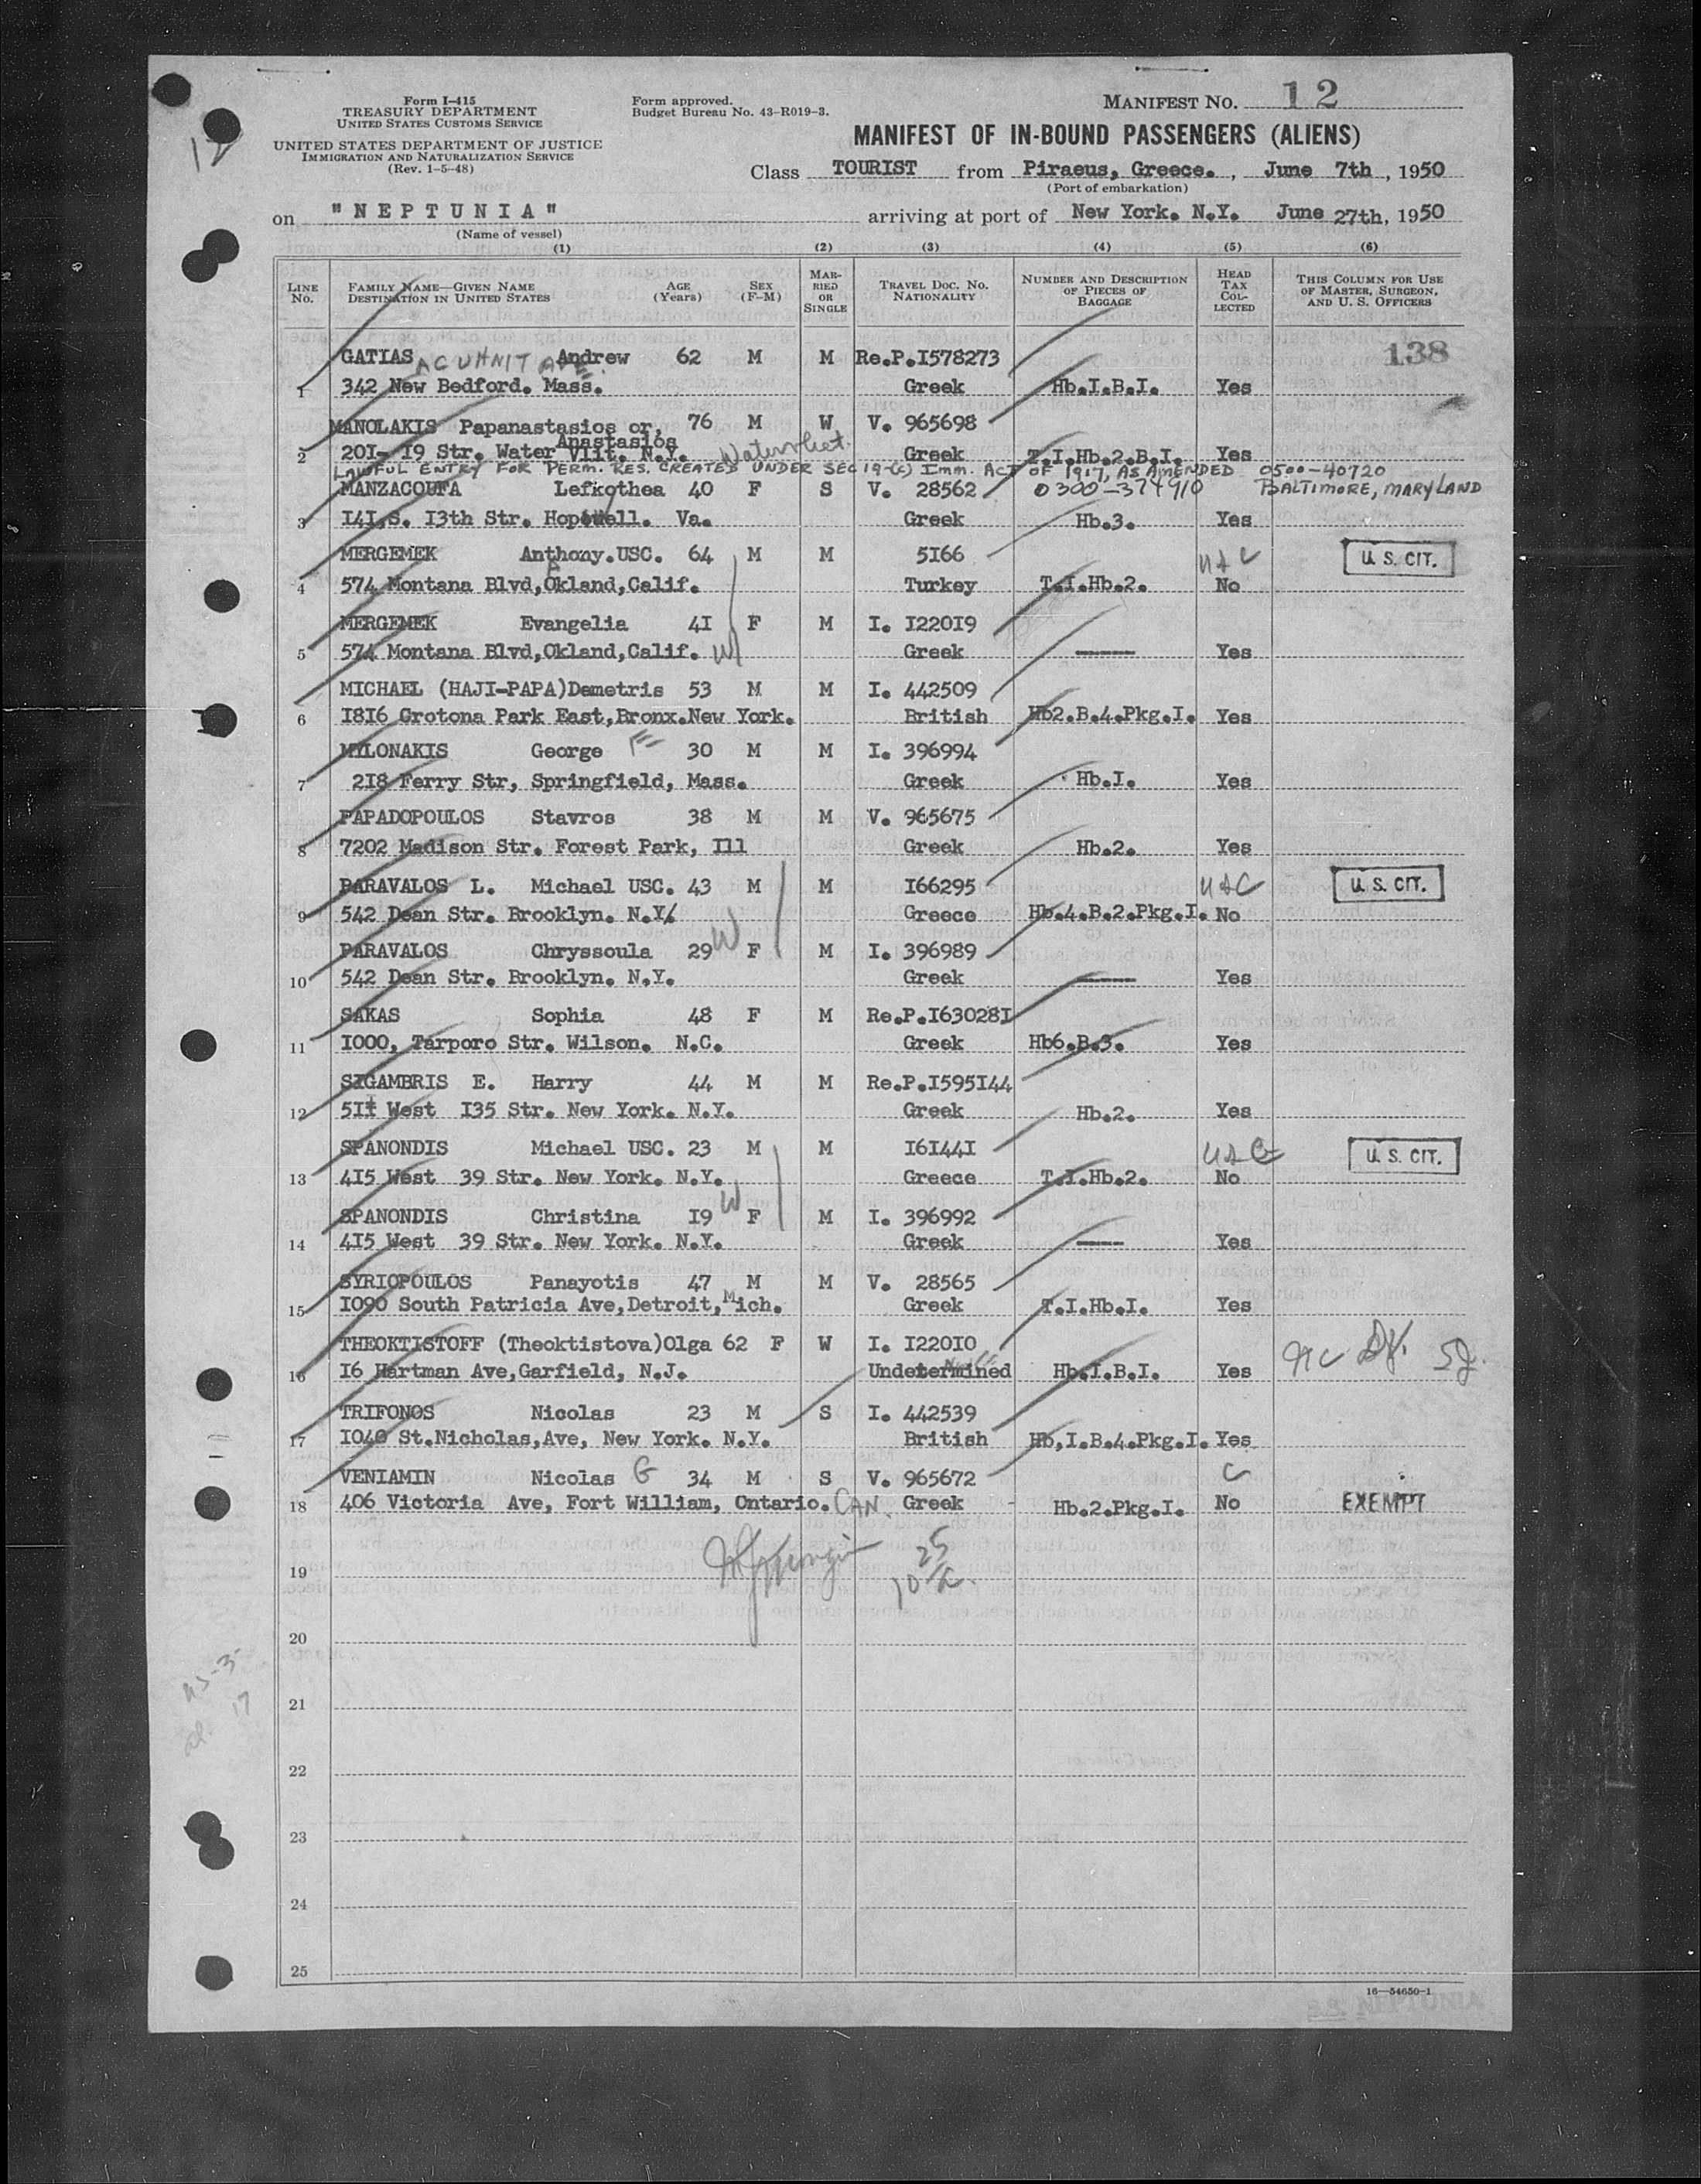 Form I-415
TREASURY DEPARTMENT
UNITED STATES CUSTOMS SERVICE
UNITED STATES DEPARTMENT OF JUSTICE
IMMIGRATION AND NATURALIZATION SERVICE
(Rev. 1-5-48)
Form approved.
Budget Bureau No. 43-R019-3.
MANIFEST NO. 12
MANIFEST OF IN-BOUND PASSENGERS (ALIENS)
Class TOURIST from Piraeus, Greece. , June 7th , 1950
(Port of embarkation)
on "NEPTUNIA" arriving at port of New York. N.Y. June 27th, 1950
(Name of vessel)
(1) (2) (3) (4) (5) (6)
LINE NO. FAMILY NAME—GIVEN NAME DESTINATION IN UNITED STATES AGE (Years) SEX (F-M) MARRIED OR SINGLE TRAVEL DOC. NO. NATIONALITY NUMBER AND DESCRIPTION OF PIECES OF BAGGAGE HEAD TAX COLLECTED THIS COLUMN FOR USE OF MASTER, SURGEON, AND U. S. OFFICERS
138
GATIAS Andrew 62 M M Re.P.I578273
ACUHNIT AVE.
1 342 New Bedford. Mass. Greek Hb.I.B.I. Yes
MANOLAKIS Papanastasios or, 76 M W V. 965698
Anastasios
2 20I- I9 Str. Water Vlit. N.Y. Watervliet. Greek T.I.Hb.2.B.I. Yes
LAWFUL ENTRY FOR PERM. RES. CREATED UNDER SEC 19-(c) IMM. ACT OF 1917, AS AMENDED 0500-40720
MANZACOUFA Lefkothea 40 F S V. 28562 0300-374910 BALTIMORE, MARYLAND
3 I4I,S. I3th Str. Hopewell. Va. Greek Hb.3. Yes
MERGEMEK Anthony.USC. 64 M M 5I66 USC U. S. CIT.
4 574 Montana Blvd,Okland,Calif. Turkey T.I.Hb.2. No
MERGEMEK Evangelia 4I F M I. I220I9
5 574 Montana Blvd,Okland,Calif. W Greek ——— Yes
MICHAEL (HAJI-PAPA)Demetris 53 M M I. 442509
6 I8I6 Crotona Park East,Bronx.New York. British Hb2.B.4.Pkg.I. Yes
MYLONAKIS George E 30 M M I. 396994
7 2I8 Ferry Str, Springfield, Mass. Greek Hb.I. Yes
PAPADOPOULOS Stavros 38 M M V. 965675
8 7202 Madison Str. Forest Park, Ill Greek Hb.2. Yes
PARAVALOS L. Michael USC. 43 M M I66295 USC U. S. CIT.
9 542 Dean Str. Brooklyn. N.Y. Greece Hb.4.B.2.Pkg.I. No
PARAVALOS Chryssoula 29 W F M I. 396989
10 542 Dean Str. Brooklyn. N.Y. Greek ——— Yes
SAKAS Sophia 48 F M Re.P.I63028I
11 I000, Tarporo Str. Wilson. N.C. Greek Hb6.B.3. Yes
SIGAMBRIS E. Harry 44 M M Re.P.I595I44
12 5II West I35 Str. New York. N.Y. Greek Hb.2. Yes
SPANONDIS Michael USC. 23 M M I6I44I USC U. S. CIT.
13 4I5 West 39 Str. New York. N.Y. Greece T.I.Hb.2. No
SPANONDIS Christina I9 W F M I. 396992
14 4I5 West 39 Str. New York. N.Y. Greek ——— Yes
SYRIOPOULOS Panayotis 47 M M V. 28565
15 I090 South Patricia Ave,Detroit,Mich. Greek T.I.Hb.I. Yes
THEOKTISTOFF (Theoktistova)Olga 62 F W I. I220I0
16 I6 Hartman Ave,Garfield, N.J. Undetermined Hb.I.B.I. Yes
TRIFONOS Nicolas 23 M S I. 442539
17 I040 St.Nicholas,Ave, New York. N.Y. British Hb,I.B.4.Pkg.I. Yes
VENIAMIN Nicolas G 34 M S V. 965672 C
18 406 Victoria Ave, Fort William, Ontario. CAN. Greek Hb.2.Pkg.I. No EXEMPT
19
20
21
22
23
24
25
16—54650-1
S.S. NEPTUNIA